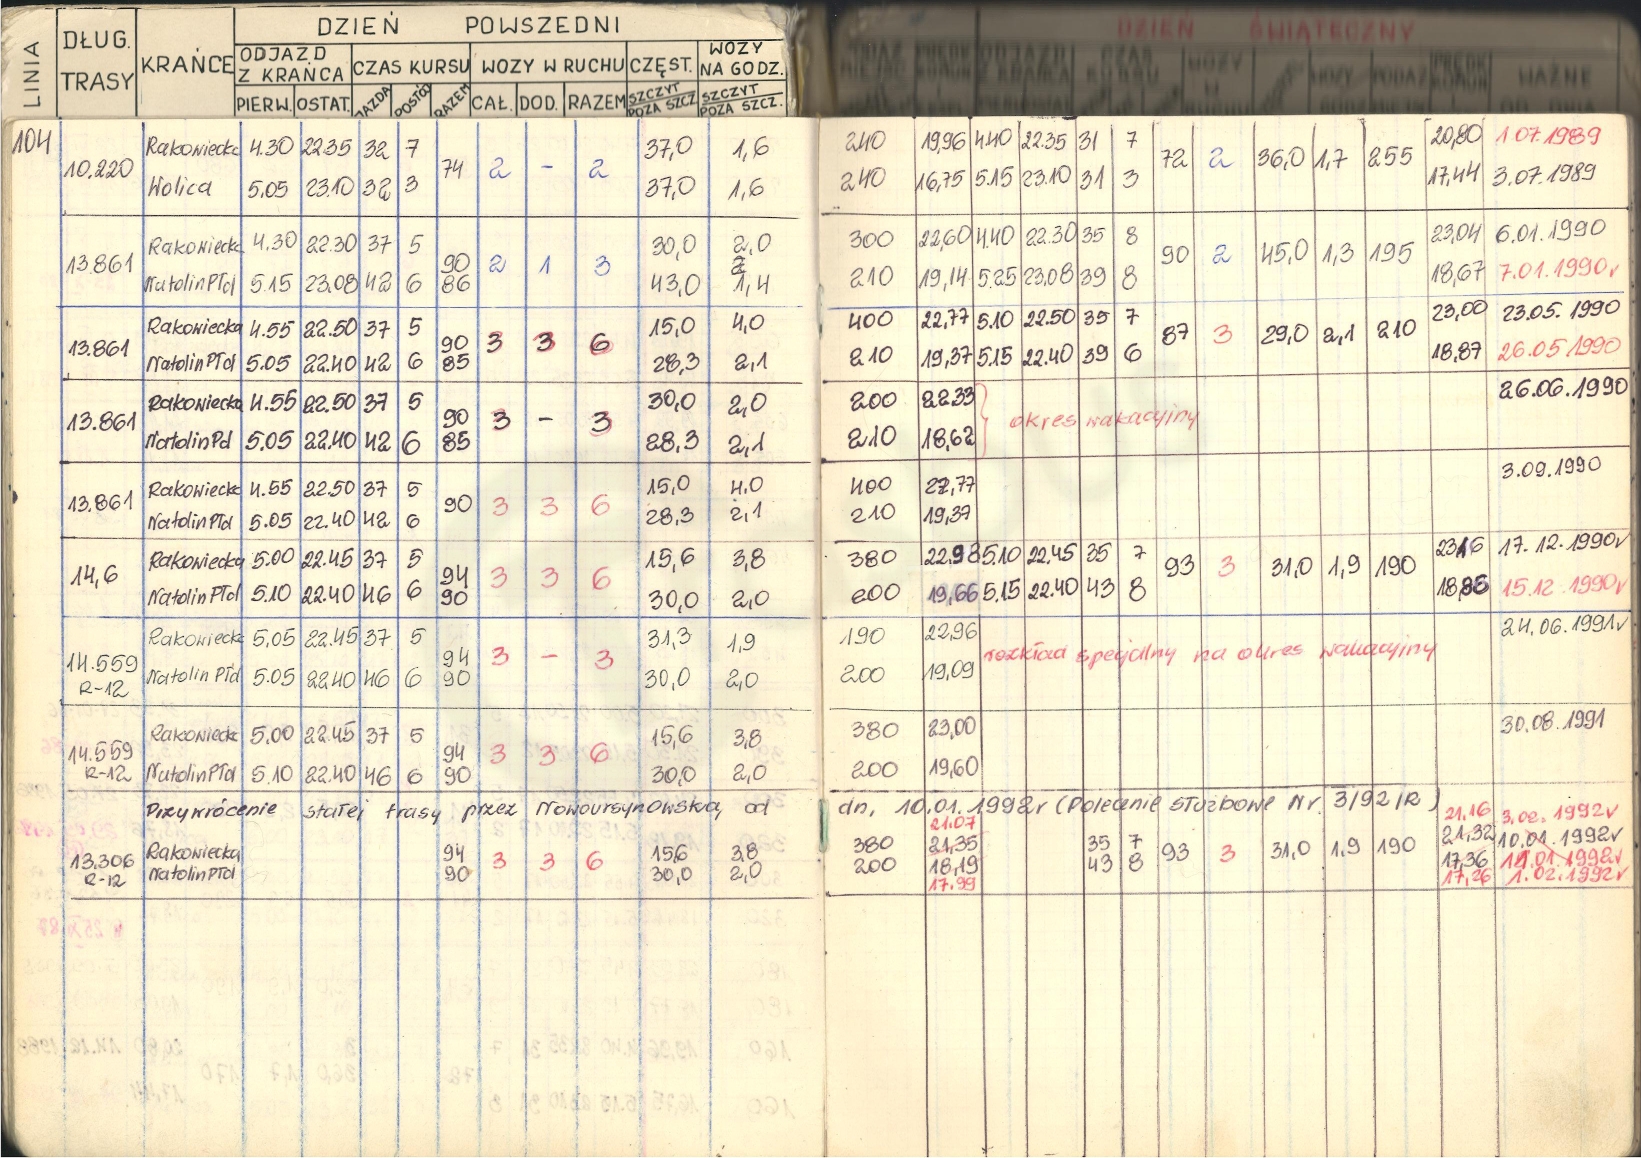 LINIA DŁUG. TRASY KRAŃCE DZIEŃ POWSZEDNI DZIEŃ ŚWIĄTECZNY
ODJAZD Z KRAŃCA CZAS KURSU WOZY W RUCHU CZĘST. WOZY NA GODZ.
PIERW. OSTAT. JAZDA POSTÓJ RAZEM CAŁ. DOD. RAZEM SZCZYT POZA SZCZ. SZCZYT POZA SZCZ. WAŻNE OD DNIA
104
Rakowiecka 4.30 22.35 32 7 37,0 1,6 240 19,96 4.40 22.35 31 7 20,80 1.07.1989
10.220 74 2 - 2 72 2 36,0 1,7 255
Wolica 5.05 23.10 32 3 37,0 1,6 240 16,75 5.15 23.10 31 3 17,44 3.07.1989
Rakowiecka 4.30 22.30 37 5 30,0 2,0 300 22,60 4.40 22.30 35 8 23,04 6.01.1990
13.861 90 2 1 3 90 2 45,0 1,3 195
Natolin Płd 5.15 23.08 42 6 86 43,0 1,4 210 19,14 5.25 23.08 39 8 18,67 7.01.1990r
Rakowiecka 4.55 22.50 37 5 15,0 4,0 400 22,77 5.10 22.50 35 7 23,00 23.05.1990
13.861 90 3 3 6 87 3 29,0 2,1 210
Natolin Płd 5.05 22.40 42 6 85 28,3 2,1 210 19,37 5.15 22.40 39 6 18,87 26.05.1990
Rakowiecka 4.55 22.50 37 5 30,0 2,0 200 22.33 26.06.1990
13.861 90 3 - 3 okres wakacyjny
Natolin Pd 5.05 22.40 42 6 85 28,3 2,1 210 18,62
Rakowiecka 4.55 22.50 37 5 15,0 4,0 400 22,77 3.09.1990
13.861 90 3 3 6
Natolin Płd 5.05 22.40 42 6 28,3 2,1 210 19,37
Rakowiecka 5.00 22.45 37 5 15,6 3,8 380 22,98 5.10 22.45 35 7 23,16 17.12.1990r
14,6 94 3 3 6 93 3 31,0 1,9 190
Natolin Płd 5.10 22.40 46 6 90 30,0 2,0 200 19,66 5.15 22.40 43 8 18,86 15.12.1990r
Rakowiecka 5,05 22.45 37 5 31,3 1,9 190 22,96 24.06.1991r
14.559 94 3 - 3 rozkład specjalny na okres wakacyjny
R-12 Natolin Płd 5.05 22.40 46 6 90 30,0 2,0 200 19,09
Rakowiecka 5,00 22.45 37 5 15,6 3,8 380 23,00 30.08.1991
14.559 94 3 3 6
R-12 Natolin Płd 5.10 22.40 46 6 90 30,0 2,0 200 19,60
Przywrócenie stałej trasy przez Nowoursynowską od dn. 10.01.1992r (Polecenie służbowe Nr. 3/92/R)
21.07 21,16 3.02.1992r
Rakowiecka 94 15,6 3,8 380 21,35 35 7 21,32 10.01.1992r
13.306 3 3 6 93 3 31,0 1,9 190
R-12 Natolin Płd 90 30,0 2,0 200 18,19 43 8 17,36 11.01.1992r
17.99 17,26 1.02.1992r